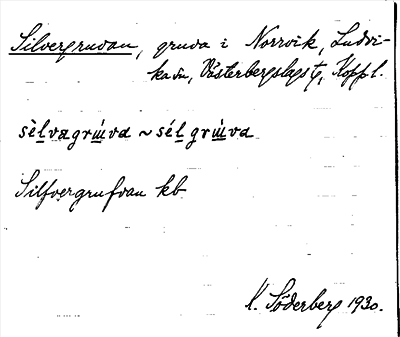 Silvergruvan, gruva i Norrvik, Ludvi-
ka sn, Västerbergslags t, Kopp l.
sèlvagrɯ́va ~ sél grɯ́va
Silfvergrufvan kb
K. Söderberg 1930.